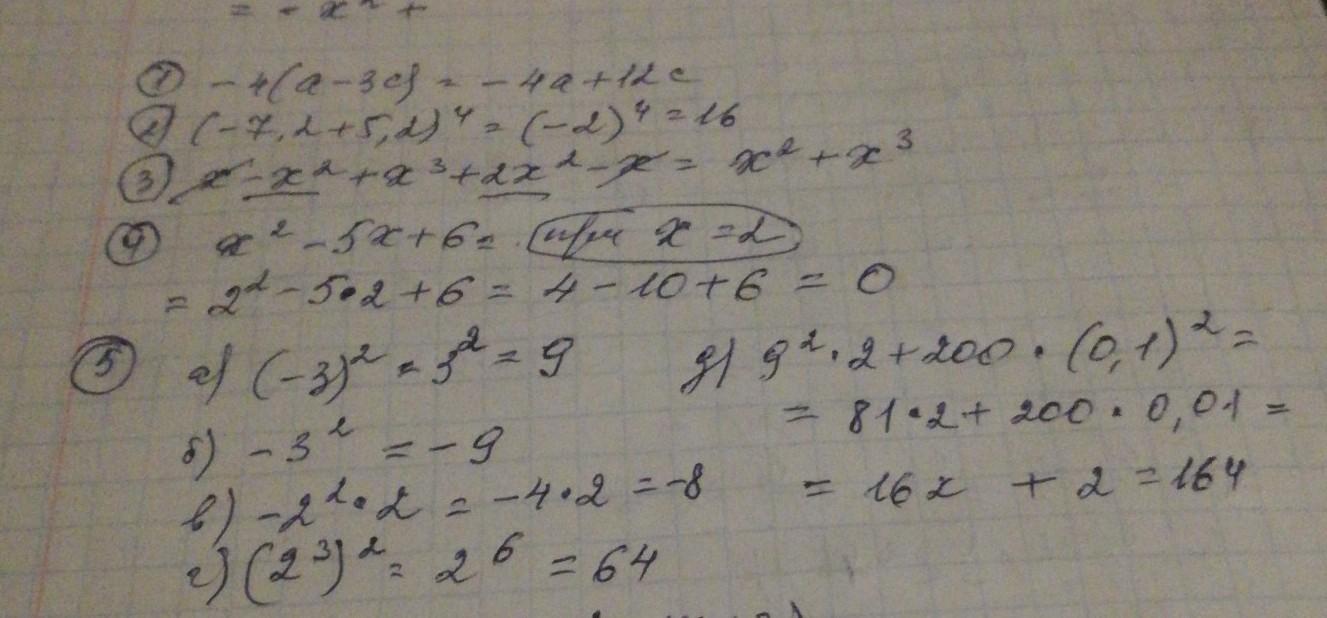 = - x² +
① -4(a-3c) = -4a+12c
② (-7,2+5,2)⁴ = (-2)⁴ = 16
③ x-x²+x³+2x²-x = x²+x³
④ x²-5x+6= при x=2
= 2²-5•2+6 = 4-10+6 = 0
⑤ а) (-3)² = 3² = 9
б) -3² = -9
в) -2²•2 = -4•2 = -8
г) (2³)² = 2⁶ = 64
д) 9²•2+200•(0,1)² =
= 81•2+200•0,01 =
= 162 + 2 = 164